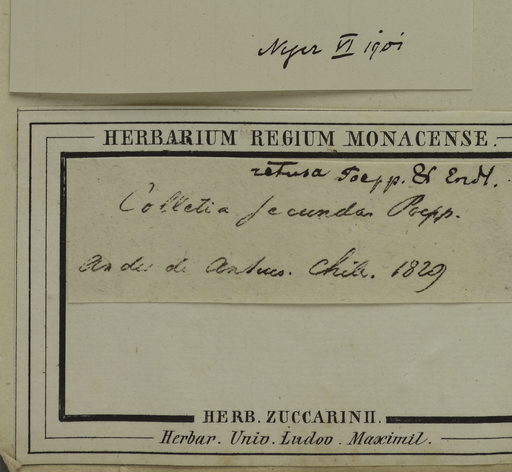 VI 1901
HERBARIUM REGIUM MONACENSE.
retusa Poepp. & Endl.
Colletia secunda Poepp.
Andes de Antuco. Chile. 1829
HERB. ZUCCARINII.
Herbar. Univ. Ludov. Maximil.